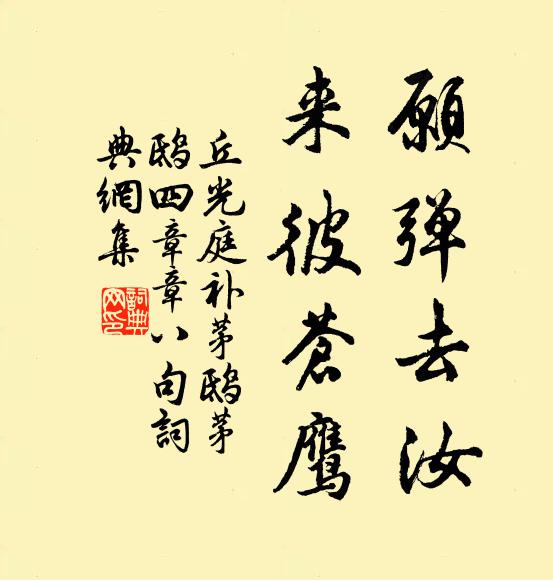 願弹去汝
来彼蒼鹰
丘光庭补茅鴟茅
鴟四章章八句詞
典網集
詞典
网印